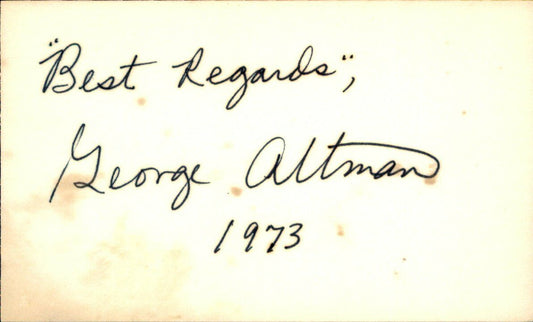 "Best Regards",
George Altman
1973